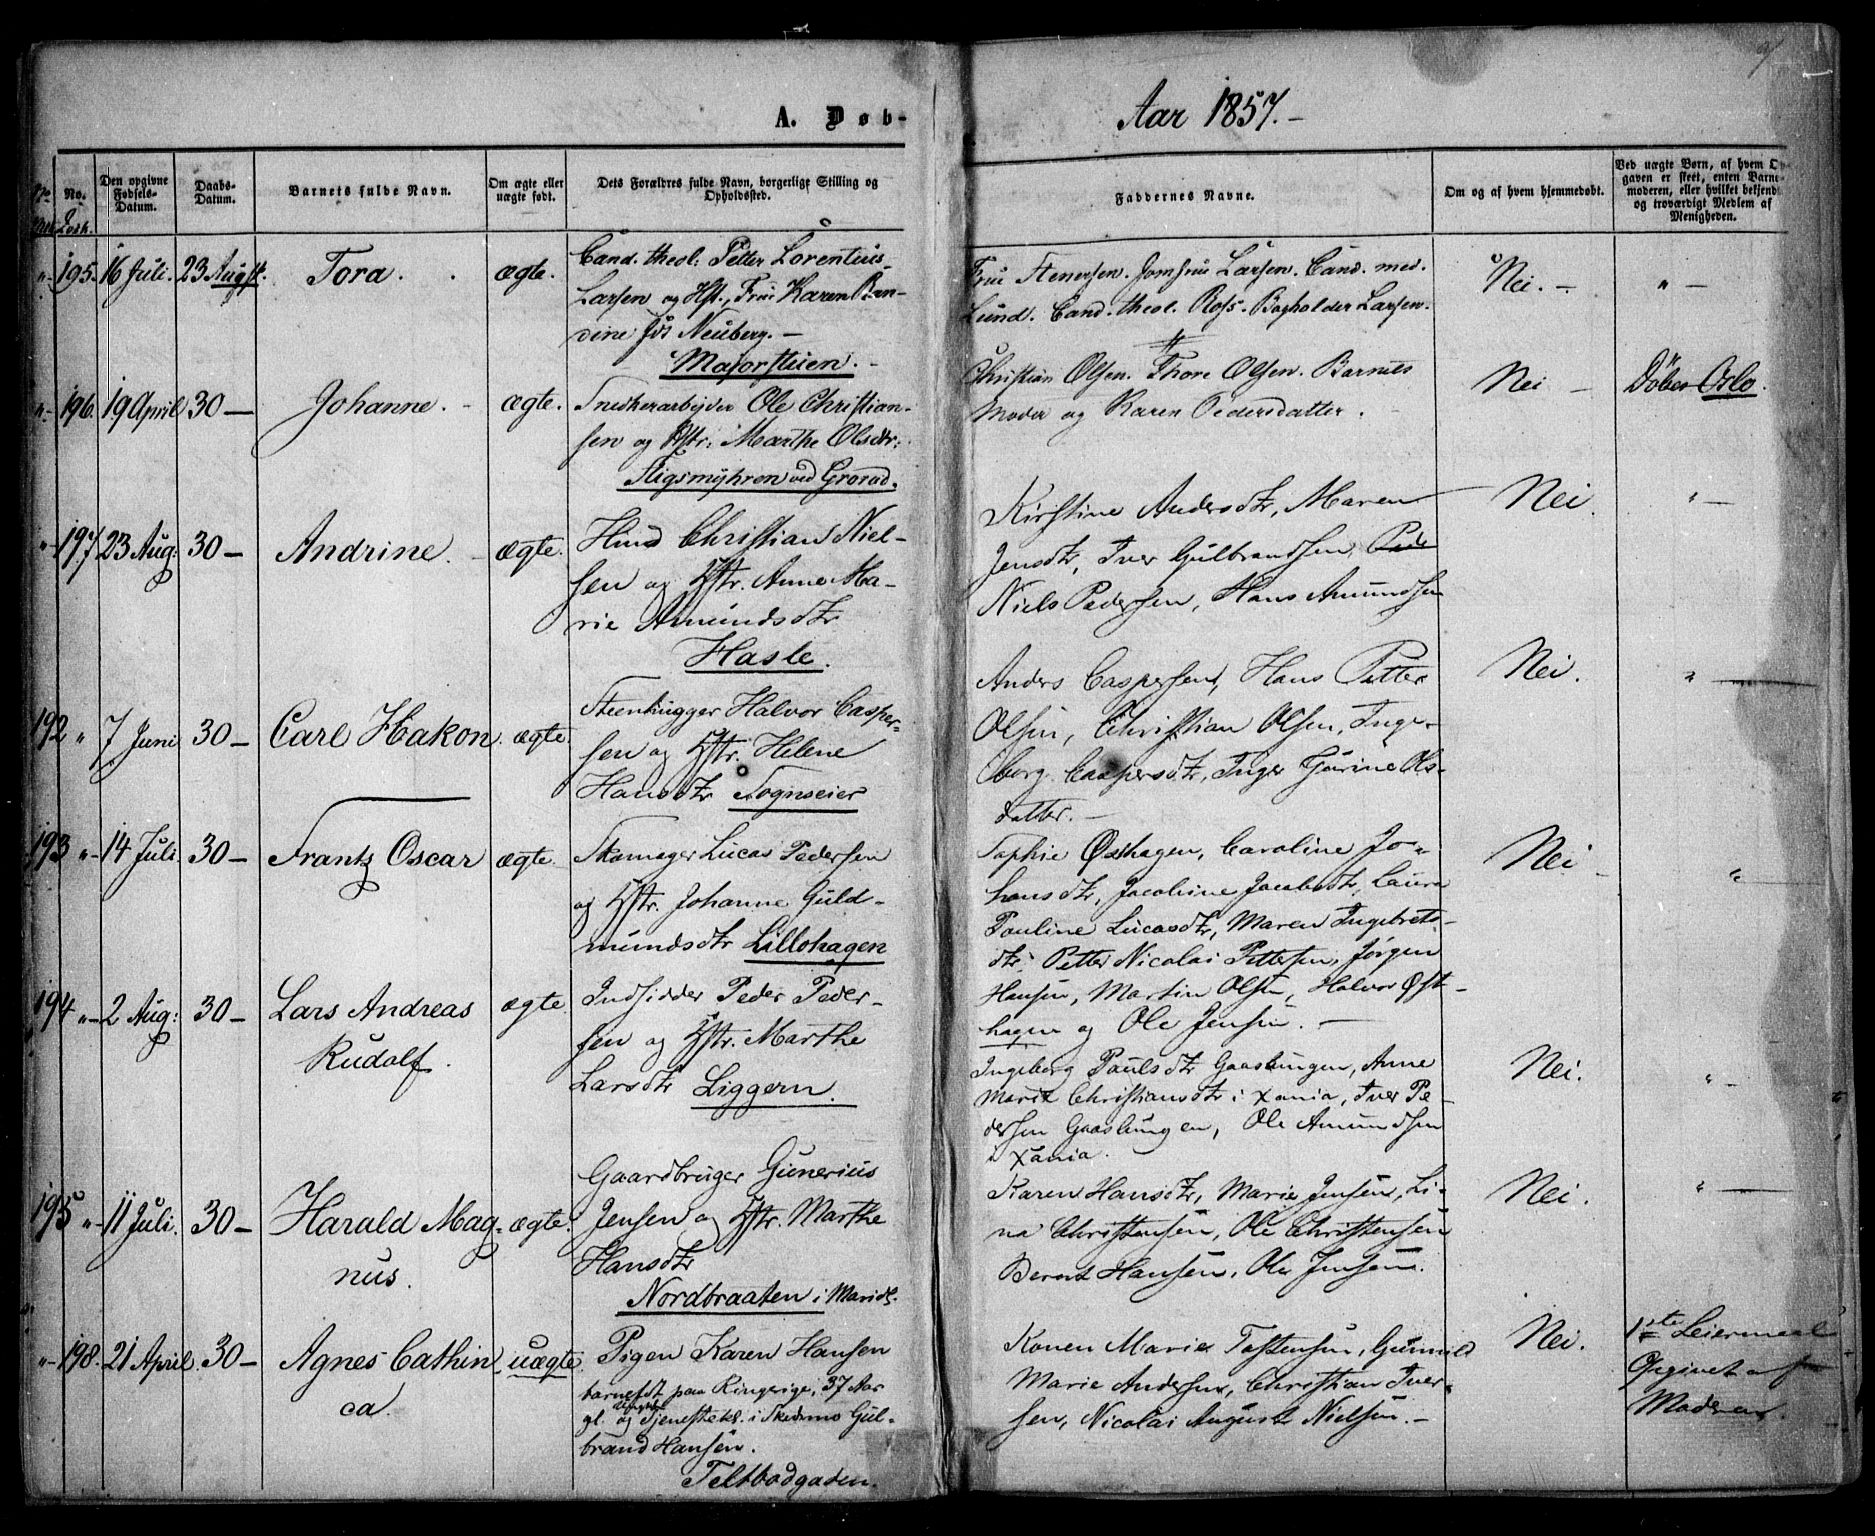 A. Døb-
Aar 1857.-
No.
Den opgivne Fødsels-Datum.
Daabs-Datum.
Barnets fulde Navn.
Om ægte eller uægte født.
Dets Forældres fulde Navn, borgerlige Stilling og Opholdssted.
Faddernes Navne.
Om og af hvem hjemmedøbt.
Ved uægte Børn, af hvem Opgaven er skeet, enten Barnemoderen, eller hvilket bekjendt og troværdigt Medlem af Menigheden.
" 195. 16 Juli. 23 Augst. Tora. ægte.
Cand. theol: Petter Lorentius
Larsen og Hst., Frue Karen Ben-
dine fdt Neuberg.-
Majorstuen.-
Frue Stenersen. Jomfrue Larsen. Cand. med.
Lund. Cand. theol. Ross. Bogholder Larsen.
Nei.- "-
" 196. 19 April 30- Johanne. ægte.
Snedkerarbejder Ole Christian-
sen og Hstr: Marthe Olsdtr:
Stigsmyhren ved Grorud.
Christian Olsen. Thore Olsen. Barnets
Moder og Karen Pedersdatter.
Nei - Døber Oslo.
" 197 23 Aug: 30- Andrine. ægte.
Hmd Christian Niel-
sen og Hstr. Anne Ma-
rie Amundsdtr
Hasle.
Kirstine Andersdtr, Maren
Jensdtr, Iver Gulbrandsen, Pede
Niels Pedersen, Hans Amundsen
Nei. "-
192 " 7 Juni 30- Carl Hakon. ægte.
Steenhugger Halvor Casper-
sen og Hstr. Helene
Hansdtr Sognseier
Anders Caspersen, Hans Petter
Olsen, Christian Olsen, Inge-
borg Caspersdtr, Inger Gurine Ols-
datter.-
Nei. "-
193 "- 14 Juli 30- Frantz Oscar ægte.
Skomager Lucas Pedersen
og Hstr. Johanne Guld-
mundsdtr Lillohagen
Sophie Østhagen, Caroline Jo-
hansdtr, Jacobine Jacobsdtr, Laura
Pauline Lucasdtr, Maren Ingebrets-
dtr, Petter Nicolai Pettersen, Jørgen
Hansen, Martin Olsen, Halvor Øst-
hagen og Ole Jensen.-
Nei. "
194 "- 2 Aug: 30- Lars Andreas
Rudolf. ægte
Indsidder Peder Peder-
sen og Hstr. Marthe
Larsdtr Liggern.
Ingeborg Paulsdtr Gaasbungen, Anne
Marie Christiansdtr i Xania, Iver Pe-
dersen Gaasbungen, Ole Amundsen
i Xania.
Nei. "-
195 "- 11 Juli. 30- Harald Mag-
nus. ægte.
Gaardbruger Gunerius
Jensen og Hstr. Marthe
Hansdtr
Nordbraaten i Maridl.
Karen Hansdtr, Marie Jensen, Li-
na Christensen, Ole Christensen
Bernt Hansen, Ole Jensen.
Nei. "-
"- 198. 21 April. 30- Agnes Cathin
ca. uægte.
Pigen Karen Hansen
barnefdt paa Ringerige, 37 Aar
gl. og Tjenestekl. i Skedsmo Gul-
brand Hansen.
Teltbodgaden.
Konen Marie Tostensen, Gunnild
Marie Andersen, Christian Iver-
sen, Nicolai August Nielsen.-
Nei.
1ste Leiermaal
Opgivet af
Moderen.